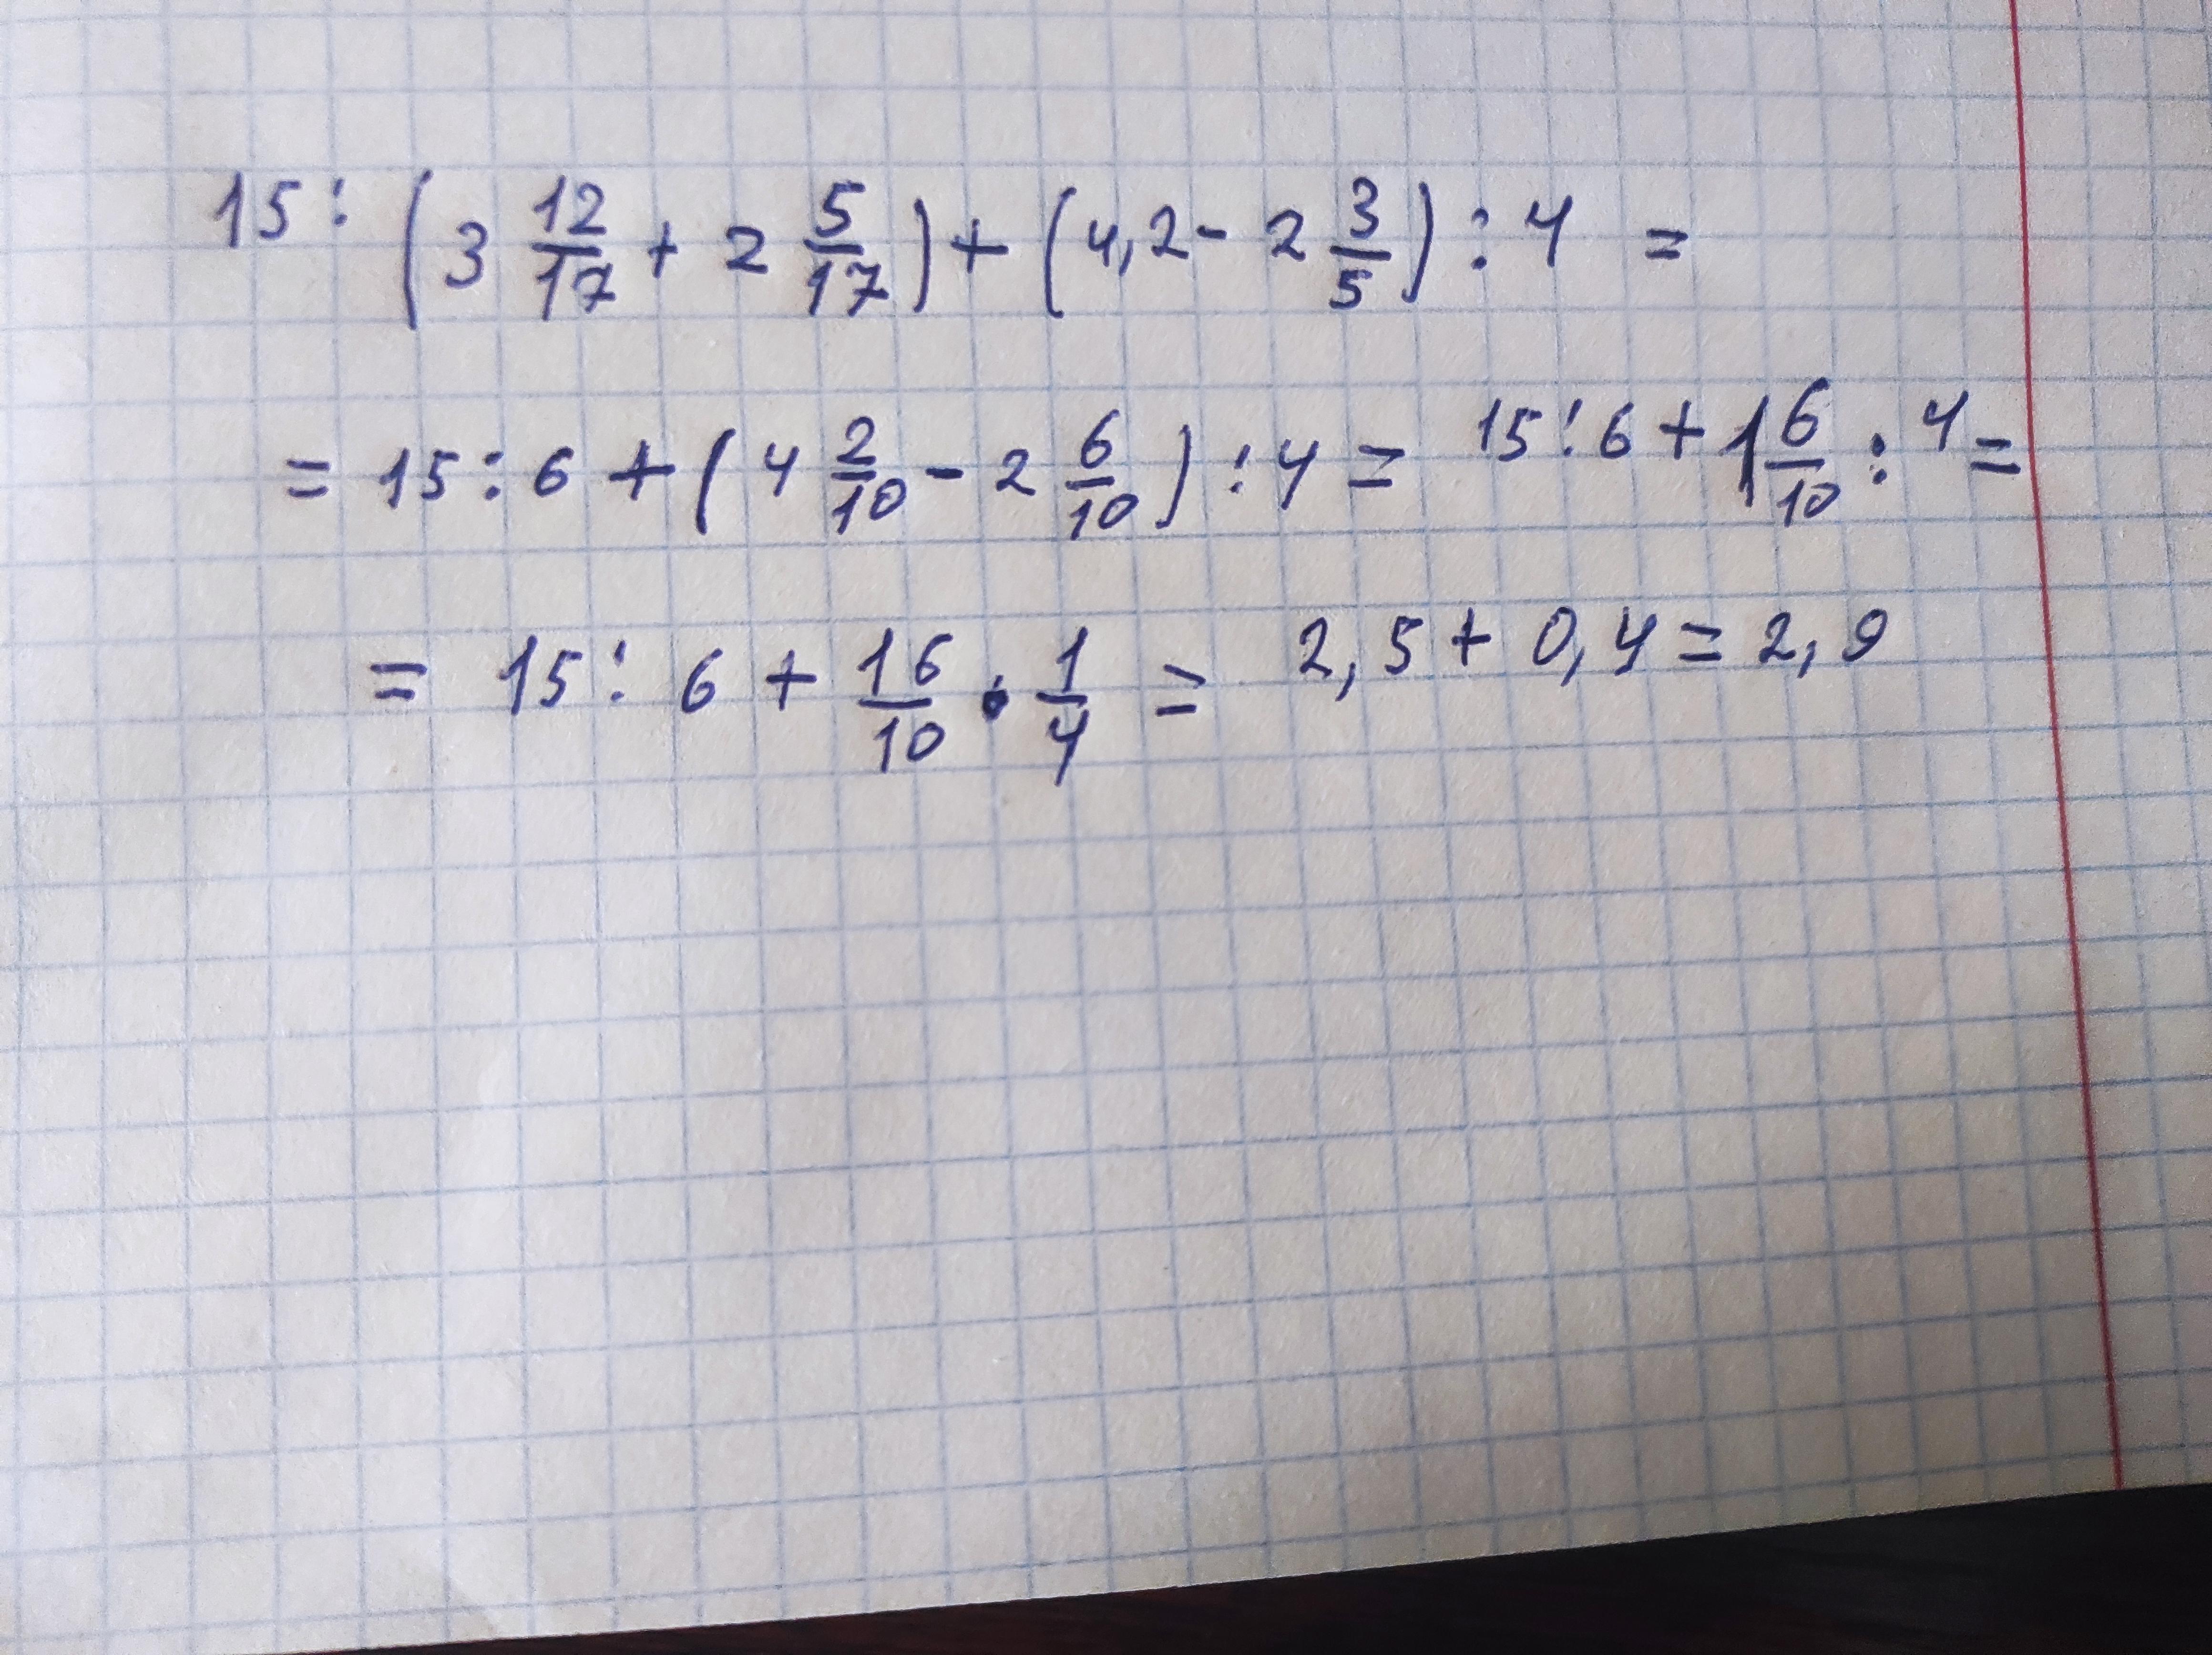 15 : (3 12/17 + 2 5/17) + (4,2 - 2 3/5) : 4 =
= 15 : 6 + (4 2/10 - 2 6/10) : 4 = 15 : 6 + 1 6/10 : 4 =
= 15 : 6 + 16/10 · 1/4 = 2,5 + 0,4 = 2,9